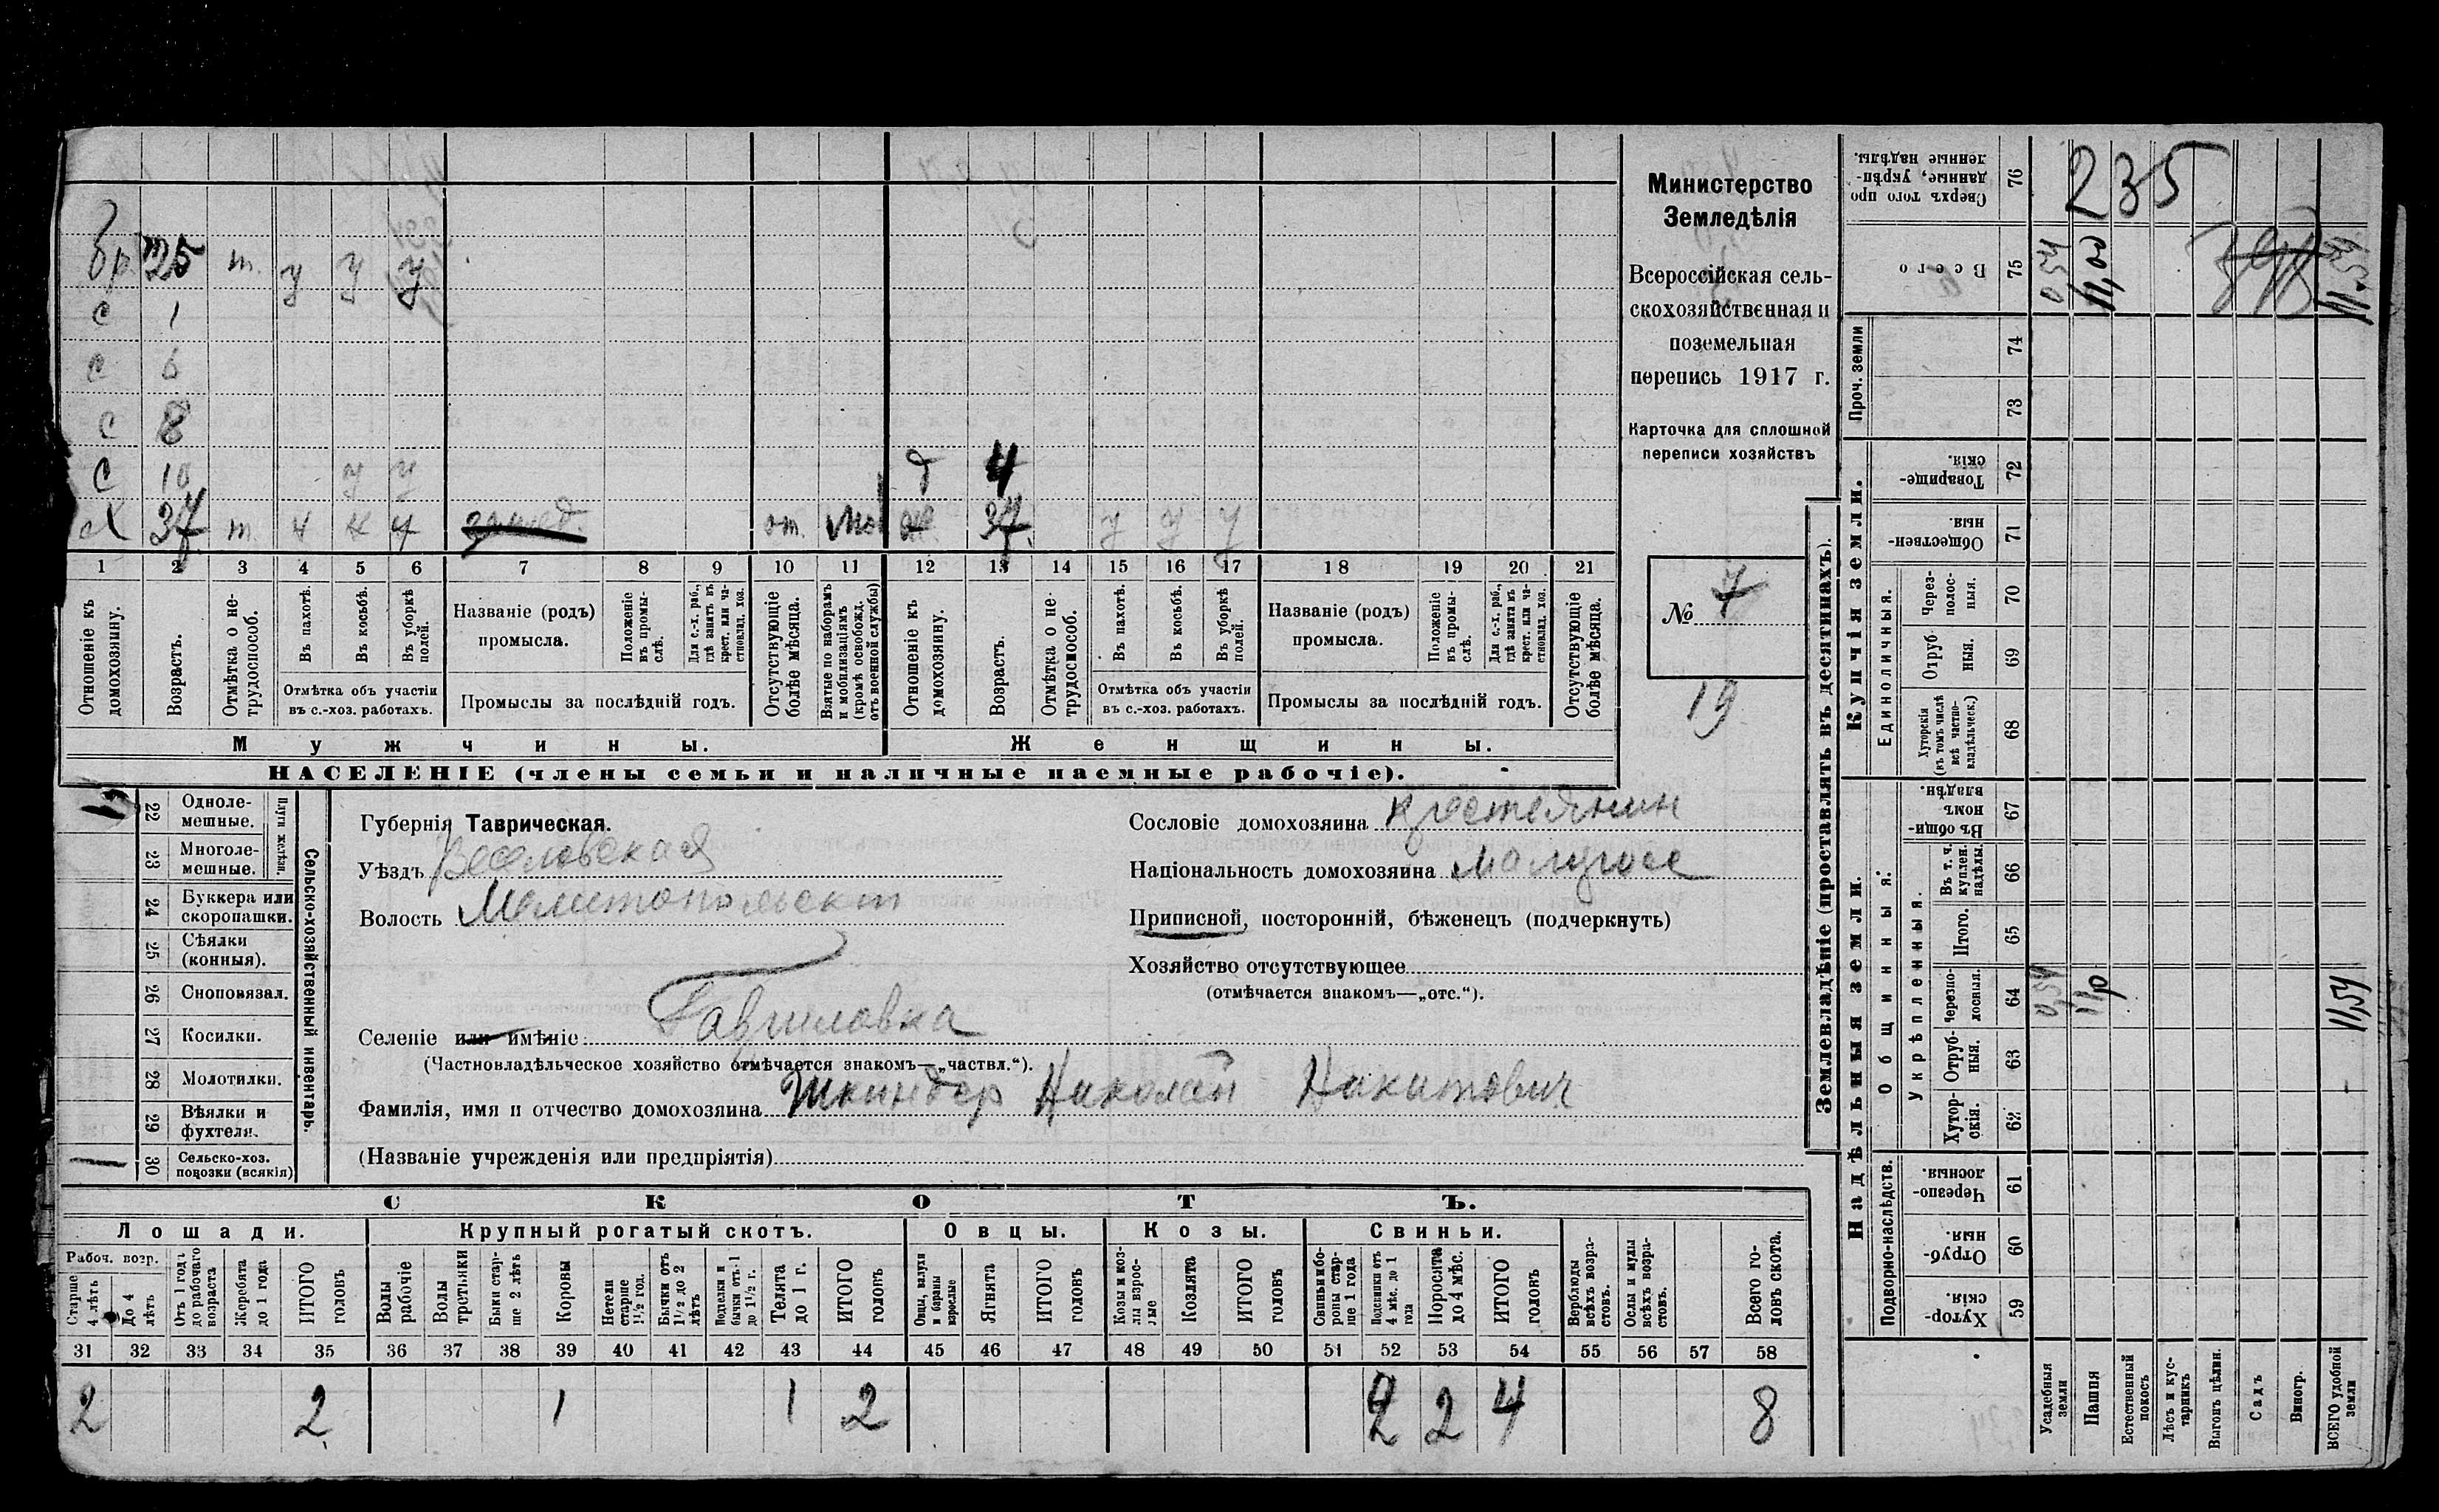 бр. 25 т. у у у
с 1
с 6
с 8
с 10 у у д 4
х 37 т. ч ч ч от. ж 37 у у у
1 2 3 4 5 6 7 8 9 10 11 12 13 14 15 16 17 18 19 20 21
Отношеніе къ домохозяину.
Возрастъ.
Отмѣтка о не-трудоспособ.
Въ пахотѣ.
Въ косьбѣ.
Въ уборкѣ полей.
Отмѣтка объ участіи
въ с.-хоз. работахъ.
Названіе (родъ)
промысла.
Положеніе въ промы-слѣ.
Для с.-х. раб., гдѣ занятъ въ крест. или ча-стновлад. хоз.
Промыслы за послѣдній годъ.
Отсутствующіе болѣе мѣсяца.
Взятые по наборамъ и мобилизаціямъ (кромѣ освобожд. отъ военной службы)
Отношеніе къ домохозяину.
Возрастъ.
Отмѣтка о не-трудоспособ.
Въ пахотѣ.
Въ косьбѣ.
Въ уборкѣ полей.
Отмѣтка объ участіи
въ с.-хоз. работахъ.
Названіе (родъ)
промысла.
Положеніе въ промы-слѣ.
Для с.-х. раб., гдѣ занята въ крест. или ча-стновлад. хоз.
Промыслы за послѣдній годъ.
Отсутствующіе болѣе мѣсяца.
Мужчины.
Женщины.
НАСЕЛЕНІЕ (члены семьи и наличные наемные рабочіе).
Министерство
Земледѣлія
Всероссійская сель-
скохозяйственная и
поземельная
перепись 1917 г.
Карточка для сплошной
переписи хозяйствъ
№ 7
19
22 Одноле-мешные.
23 Многоле-мешные.
Плуги желѣзн.
24 Буккера или скоропашки.
25 Сѣялки (конныя).
26 Сноповязал.
27 Косилки.
28 Молотилки.
29 Вѣялки и фухтеля.
30 Сельско-хоз. повозки (всякія)
Сельско-хозяйственный инвентарь.
Губернія Таврическая.
Уѣздъ Веселовская
Волость Мелитопольскій
Селеніе или имѣніе: Гавриловка
(Частновладѣльческое хозяйство отмѣчается знакомъ—„частвл.“).
Фамилія, имя и отчество домохозяина Шкиндер Николай Никитович
(Названіе учрежденія или предпріятія)
Сословіе домохозяина крестьянин
Національность домохозяина малорос
Приписной, посторонній, бѣженецъ (подчеркнуть)
Хозяйство отсутствующее
(отмѣчается знакомъ—„отс.“).
СКОТЪ.
Лошади. Крупный рогатый скотъ. Овцы. Козы. Свиньи.
Рабоч. возр.
Старше 4 лѣтъ
До 4 лѣтъ
Отъ 1 года до рабочаго возраста
Жеребята до 1 года
ИТОГО головъ
Волы рабочіе
Волы третьяки
Быки стар-ше 2 лѣтъ
Коровы
Нетели старше 1½ год.
Бычки отъ 1½ до 2 лѣтъ
Подтелки и бычки отъ 1 до 1½ г.
Телята до 1 г.
ИТОГО головъ
Овцы, валухи и бараны взрослые
Ягнята
ИТОГО головъ
Козы и коз-лы взрос-лые
Козлята
ИТОГО головъ
Свиньи и бо-ровы стар-ше 1 года
Подсвинки отъ 4 мѣс. до 1 года
Поросята до 4 мѣс.
ИТОГО головъ
Верблюды всѣхъ возра-стовъ.
Ослы и мулы всѣхъ возра-стовъ.
Всего го-ловъ скота.
31 32 33 34 35 36 37 38 39 40 41 42 43 44 45 46 47 48 49 50 51 52 53 54 55 56 57 58
2 2 1 1 2 2 2 4 8
Землевладѣніе (проставлять въ десятинахъ).
Купчія земли.
Надѣльныя земли.
Сверхъ того про-данные, укрѣп-ленные надѣлы. 76 235
Всего 75 0,54 11,00 11,54
Проч. земли
74
73
Товарище-скія. 72
Обществен-ныя. 71
Единоличныя.
Через-полос-ныя. 70
Отруб-ныя. 69
Хуторскія (въ томъ числѣ всѣ частно-владѣльческ.) 68
Общинныя:
Въ общи-номъ владѣн. 67
Укрѣпленныя.
Въ т. ч. куплен. надѣлы. 66
Итого. 65
Черезпо-лосныя. 64 0,54 11,54
Отруб-ныя. 63
Хутор-скія. 62
Подворно-наслѣдств.
Черезпо-лосныя. 61
Отруб-ныя. 60
Хутор-скія. 59
Усадебныя земли
Пашня
Естественный покосъ
Лѣсъ и кус-тарникъ
Выгонъ цѣлин.
Садъ
Виногр.
ВСЕГО удобной земли